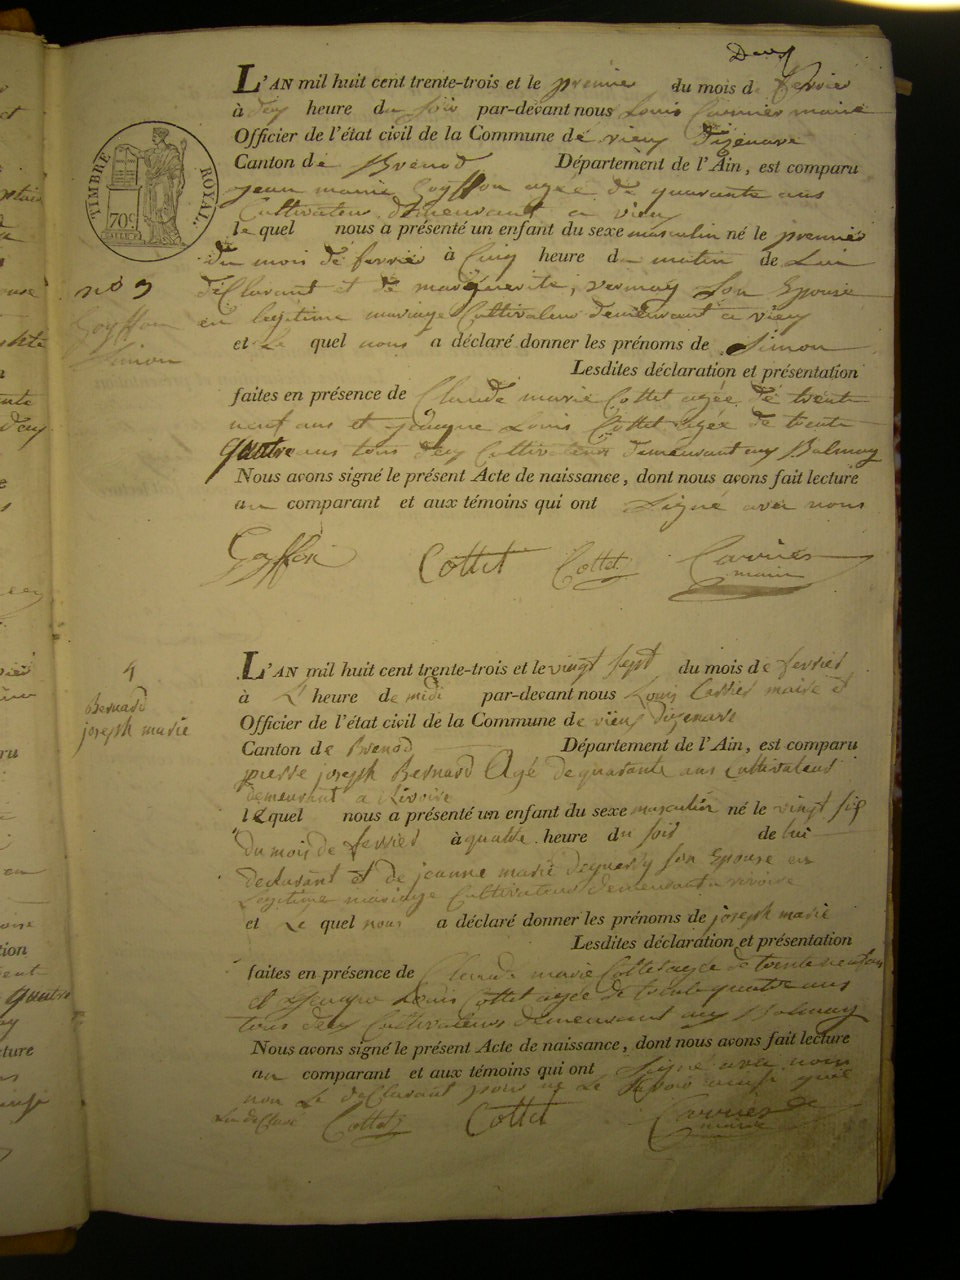 Deux
L'AN mil huit cent trente-trois et le premier du mois de fevrier
à deux heure du soir par-devant nous Louis Carrier maire
Officier de l'état civil de la Commune de vieux Dizenave
Canton de Brenod Département de l'Ain, est comparu
jean marie Goyffon agée de quarante ans
Cultivateur demeurant a vieux
le quel nous a présenté un enfant du sexe masculin né le premier
du mois de fevrier à Cinq heure du matin de Lui
déClarant et de marguerite, vermay Son Epouse
en legitime mariage Cultivateur demeurant a vieux
et Le quel nous a déclaré donner les prénoms de Simon
Lesdites déclaration et présentation
faites en présence de Claude marie Cottet agée de trente
neuf ans et jacque Louis Cottet agée de trente
quatre ans tous deux Cultivateurs demeurant aux Balmay
Nous avons signé le présent Acte de naissance, dont nous avons fait lecture
au comparant et aux témoins qui ont Signé avec nous
Goffon Cottet Cottet Carrier
maire
TIMBRE ROYAL
70c
no 3
Goyffon
Simon
4
Bernard
joseph marie
L'AN mil huit cent trente-trois et le vingt sept du mois de fevrier
à L' heure de midi par-devant nous Louis Carrier maire et
Officier de l'état civil de la Commune de vieux dizenave
Canton de Brenod Département de l'Ain, est comparu
pierre joseph Bernard Agé de quarante ans Cultivateur
demeurant a Rivoire
le quel nous a présenté un enfant du sexe masculin né le vingt six
du mois de fevrier à quatre heure du soir de lui
declarant et de jeanne marie Son Epouse en
Legitime mariage Cultivateur demeurant a rivoire
et Le quel nous a déclaré donner les prénoms de joseph marie
Lesdites déclaration et présentation
faites en présence de Claude marie Cottet agée de trente neuf ans
et jacque Louis Cottet agée de trente quatre ans
tous deux Cultivateurs demeurant aux Balmay
Nous avons signé le présent Acte de naissance, dont nous avons fait lecture
au comparant et aux témoins qui ont Signé avec nous
non Le déClarant pour ne Le Savoir ainsi que
Cottet Cottet Carrier
maire